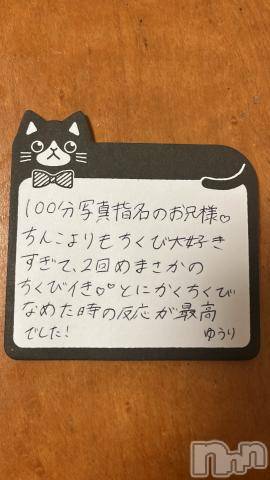 100分写真指名のお兄様♡
ちんこよりもちくび大好き
すぎて、2回めまさかの
ちくびイき♡♡とにかくちくび
なめた時の反応が最高
でした! ゆうり